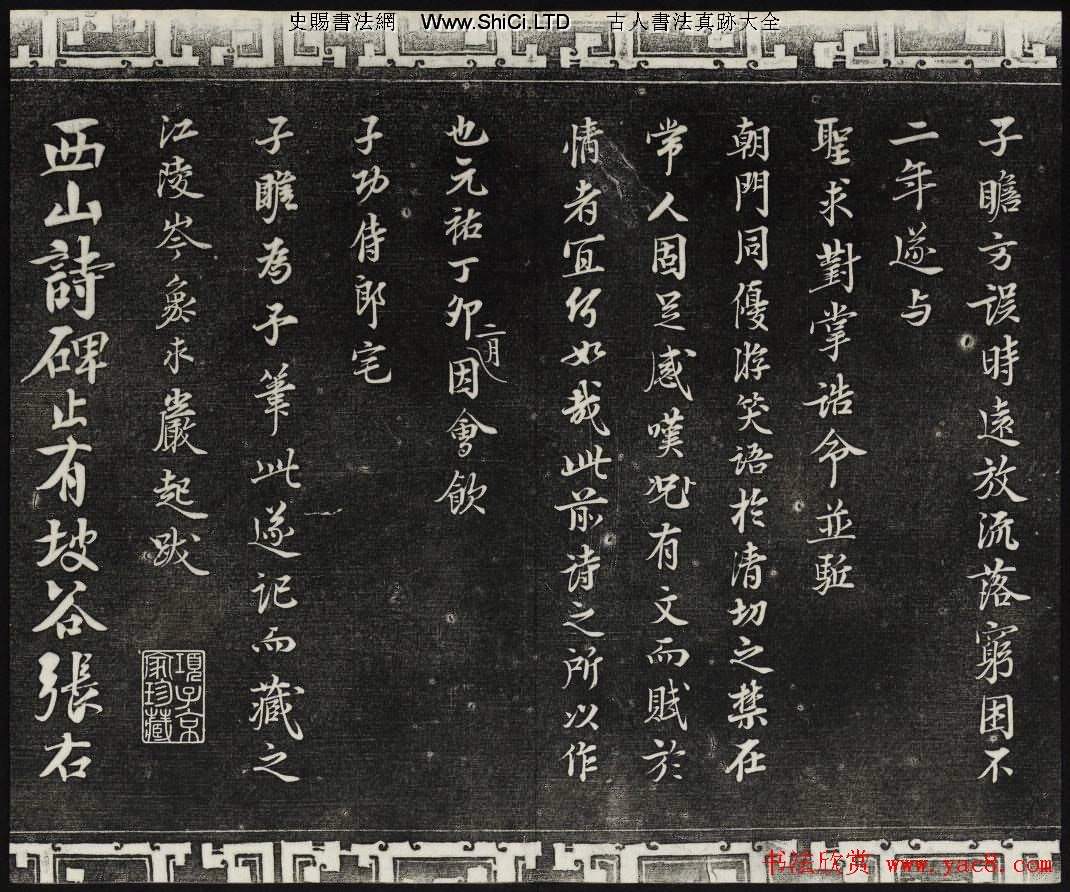 史賜書法網 Www.ShiCi.LTD 古人書法真跡大全
子瞻方误時遠放流落窮困不
二年遂与
聖求對掌誥令並駈
朝門同優游笑语於清切之禁在
常人固足感嘆况有文而賦於
情者宜何如哉此前诗之所以作
也元祐丁卯二月因會飲
子功侍郎宅
子瞻為予筆此遂记而藏之
江陵岑象求巖起跋
項子京
家珍藏
西山詩碑止有坡谷張右
书法欣赏 www.yac8.com